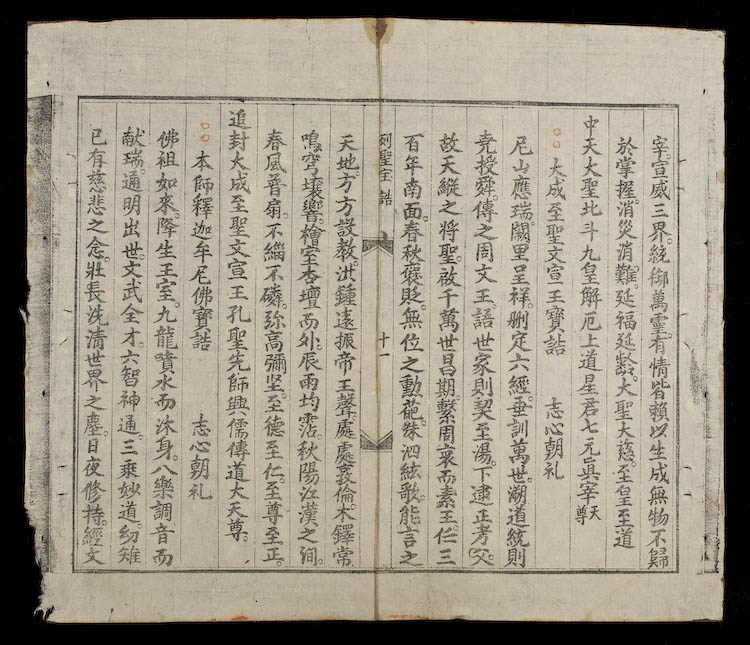 宰。宣威三界。統御萬靈。有情皆賴以生成。無物不歸
於掌握。消災消難。延福延齡。大聖大慈。至皇至道
中天大聖北斗九皇解厄上道星君七元真宰天尊
○○大成至聖文宣王寶誥 志心朝礼
尼山應瑞。闕里呈祥。删定六經。垂訓萬世。溯道統則
堯授舜。傳之周文王。語世家則契至湯。下逮正考父。
故天縱之將聖。啟千萬世昌期。繫周衰而素王。任三
百年南面。春秋褒貶。無位之勳。葩。洙泗絃歌。能言之
列聖宝誥 十一
天地。方方設教。洪鍾遠振帝王聲。處處敦倫。木鐸常
鳴穹壤響。檜室杏壇而外。辰雨均霑。秋陽江漢之洞。
春風普扇。不緇不磷。弥高彌坚。至德至仁。至尊至正。
追封大成至聖文宣王孔聖先師興儒傳道大天尊。
○○本師釋迦牟尼佛寶誥 志心朝礼
佛祖如來。降生王室。九龍噴水而沐身。八樂調音而
献瑞。通明出世。文武全才。六智神通。三乘妙道。幼雉
已有慈悲之念。壯長洗清世界之塵。日夜修持。經文